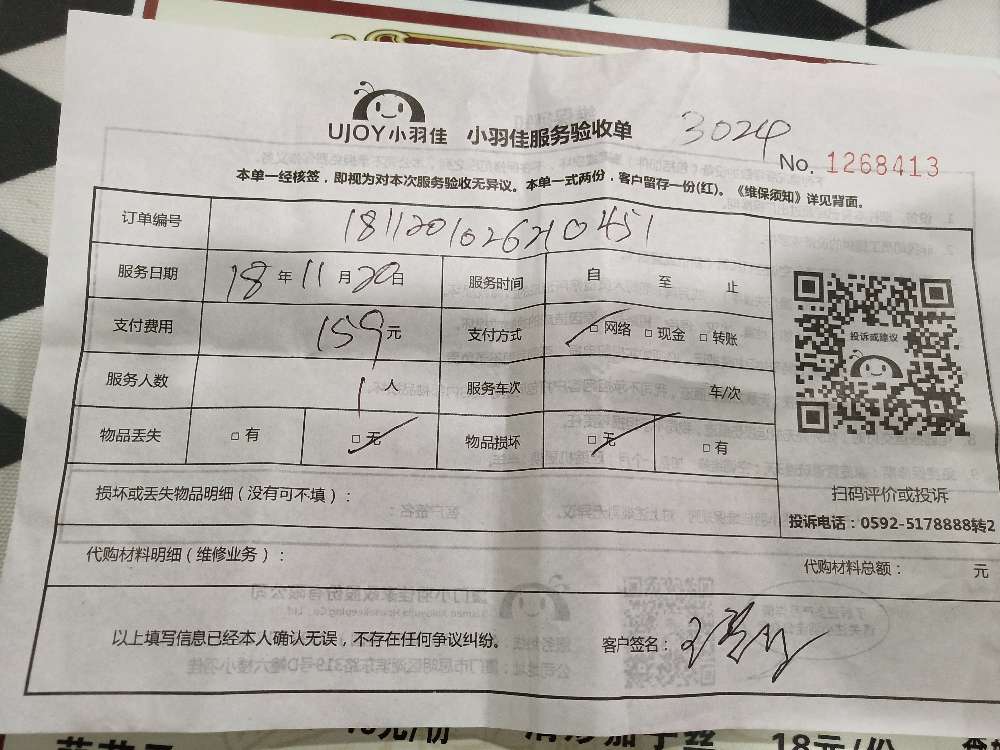 UJOY小羽佳 小羽佳服务验收单 3024
No. 1268413
本单一经核签，即视为对本次服务验收无异议。本单一式两份，客户留存一份(红)。《维保须知》详见背面。
订单编号 181120102620451
服务日期 18年11月20日 服务时间 自 至 止
支付费用 159元 支付方式 □网络 □现金 □转账
投诉或建议
服务人数 1人 服务车次 车/次
物品丢失 □有 □无 物品损坏 □无 □有
损坏或丢失物品明细（没有可不填）：
扫码评价或投诉
投诉电话：0592-5178888转2
代购材料明细（维修业务）： 代购材料总额： 元
以上填写信息已经本人确认无误，不存在任何争议纠纷。 客户签名：
元/份 18元/份